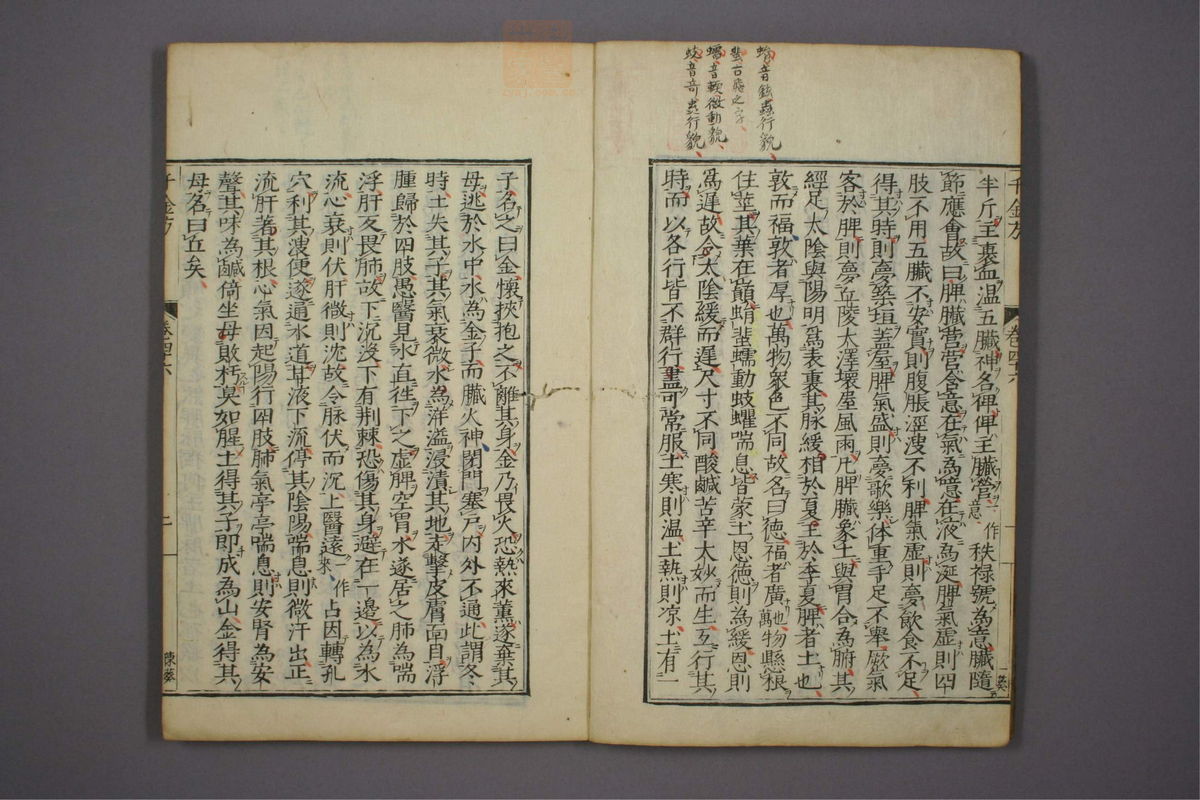 蛕音鉉蟲行貌
蜚古飛之字
蠕音軟微動貌
蚑音奇蟲行貌
千金方
卷四十六
半斤主裹血温五臟神名俾俾主臟營一作意秩禄號為意臟隨
節應會故曰脾臟營營舍意在氣為噫在液為涎脾氣虛則四
肢不用五臟不安實則腹脹涇溲不利脾氣虛則夢飲食不足
得其時則夢築垣蓋屋脾氣盛則夢歌樂体重手足不舉厥氣
客於脾則夢丘陵大澤壞屋風雨凡脾臟象土與胃合為腑其
經足太陰與陽明爲表裏其脉緩相於夏王於季夏脾者土也
敦而福敦者厚也萬物衆色不同故名曰徳福者廣也萬物懸根
住莖其葉在巔蜎蜚蠕動蚑蠼喘息皆蒙土恩徳則為緩恩則
爲遲故令太陰緩而遲尺寸不同酸鹹苦辛大妙而生互行其
時而以各行皆不群行盡可常服土寒則温土熱則凉土有一
子名之曰金懷挾抱之不離其身金乃畏火恐熱來薫遂棄其
母逃於水中水為金子而臟火神閉門塞戸内外不通此謂冬
時土失其子其氣衰微水為洋溢浸漬其地走擊皮膚面目浮
腫歸於四肢愚醫見水直徃下之虚脾空胃水遂居之肺為喘
浮肝反畏肺故下沉没下有荆棘恐傷其身避在一邊以為水
流心衰則伏肝微則沈故令脉伏而沉上醫遠一作來占因轉孔
穴利其溲便遂通水道甘液下流停其陰陽喘息則微汗出正
流肝著其根心氣因起陽行四肢肺氣亭亭喘息則安腎為安
聲其味為鹹倚坐母敗朽莫如腥土得其子即成為山金得其
母名曰丘矣
千金方
卷四十六